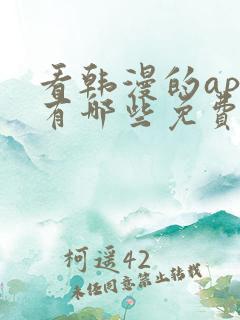 看韩漫的ap
有哪些免费
柯遥42
未经同意禁止转载